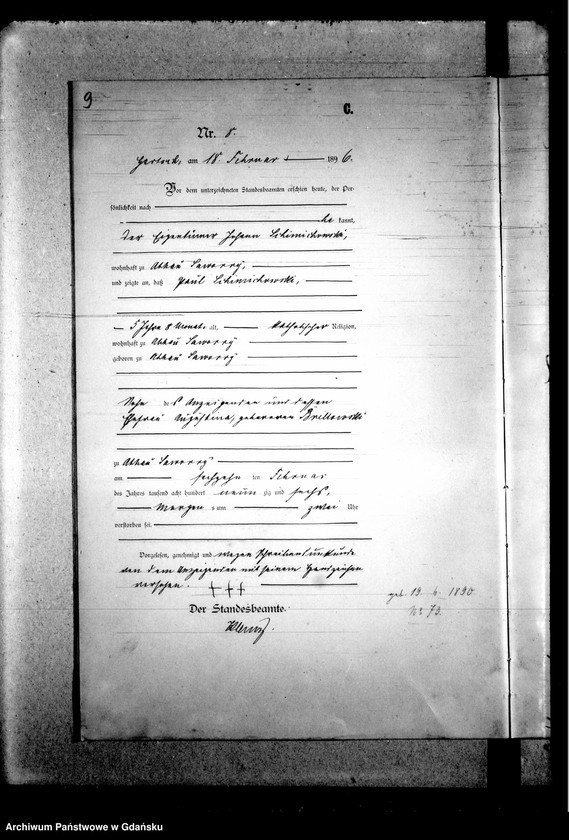 9
C.
Nr. 8.
am 18. Februar 1896.
Vor dem unterzeichneten Standesbeamten erschien heute, der Per-
sönlichkeit nach
be kannt,
der Eigenthümer Johann
wohnhaft zu Abbau
und zeigte an, daß Paul
5 Jahre 8 Monate alt, katholischer Religion,
wohnhaft zu Abbau
geboren zu Abbau
Sohn des Anzeigenden und dessen
Ehefrau Augustina, geborenen
zu Abbau
am sechzehn ten Februar
des Jahres tausend acht hundert neun zig und sechs,
Morgens um zwei Uhr
verstorben sei.
Vorgelesen, genehmigt und wegen Schreibensunkunde
von dem Anzeigenden mit seinem Handzeichen
versehen. +++
Der Standesbeamte.
geb. 13. 6. 1890
Nr 73.
Archiwum Państwowe w Gdańsku